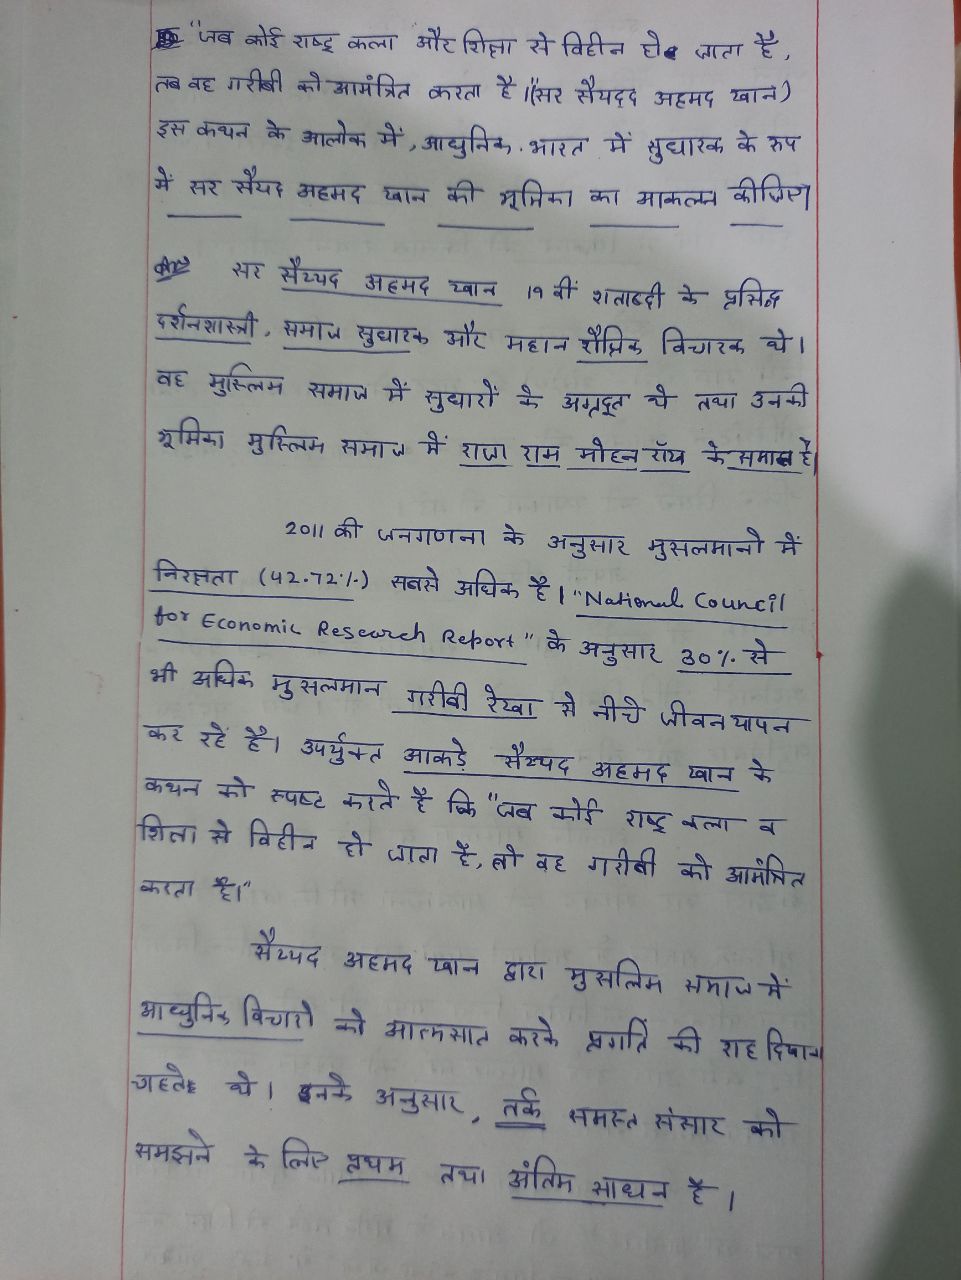 "जब कोई राष्ट्र कला और शिक्षा से विहीन हो जाता है,
तब वह गरीबी को आमंत्रित करता है।" (सर सैयदद अहमद खान)
इस कथन के आलोक में, आधुनिक भारत में सुधारक के रुप
में सर सैयद अहमद खान की भूमिका का आकलन कीजिए।
सर सैय्यद अहमद खान 19 वीं शताब्दी के प्रसिद्ध
दर्शनशास्त्री, समाज सुधारक और महान शैक्षिक विचारक थे।
वह मुस्लिम समाज में सुधारों के अग्रदूत थे तथा उनकी
भूमिका मुस्लिम समाज में राजा राम मोहन रॉय के समान है।
2011 की जनगणना के अनुसार मुसलमानो में
निरक्षता (42.72%) सबसे अधिक है। "National Council
for Economic Research Report" के अनुसार 30% से
भी अधिक मुसलमान गरीबी रेखा से नीचे जीवन यापन
कर रहें है। उपर्युक्त आकड़े सैय्यद अहमद खान के
कथन को स्पष्ट करते है कि "जब कोई राष्ट्र कला व
शिक्षा से विहीन हो जाता है, तो वह गरीबी को आमंत्रित
करता है।"
सैय्यद अहमद खान द्वारा मुसलिम समाज में
आधुनिक विचारो को आत्मसात करके प्रगति की राह दिखाना
चाहते थे। इनके अनुसार, तर्क समस्त संसार को
समझने के लिए प्रथम तथा अंतिम साधन है।